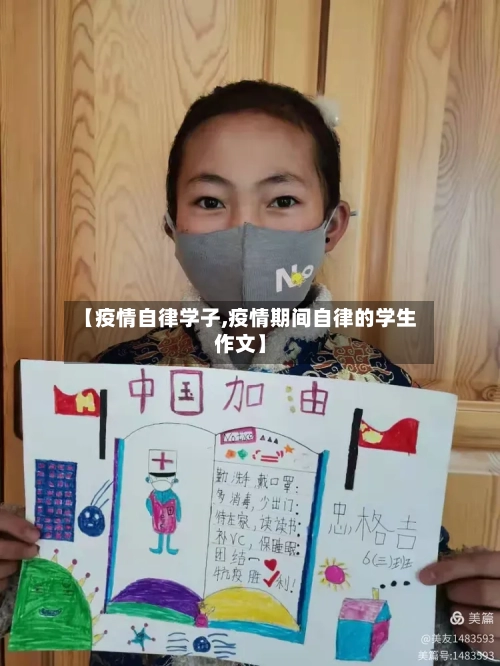 【疫情自律学子,疫情期间自律的学生
作文】
中国加油
勤洗手,戴口罩;
多消毒,少出门;
待在家,读读书;
补VC,保睡眠;
团结一
抗疫胜利!
忠格吉
6(三)班
美篇
@美友1483593
美篇号:1483593